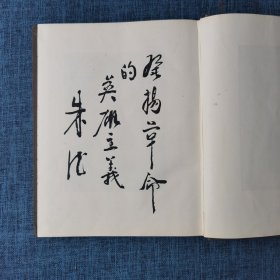 发扬革命
的
英雄主義
朱德